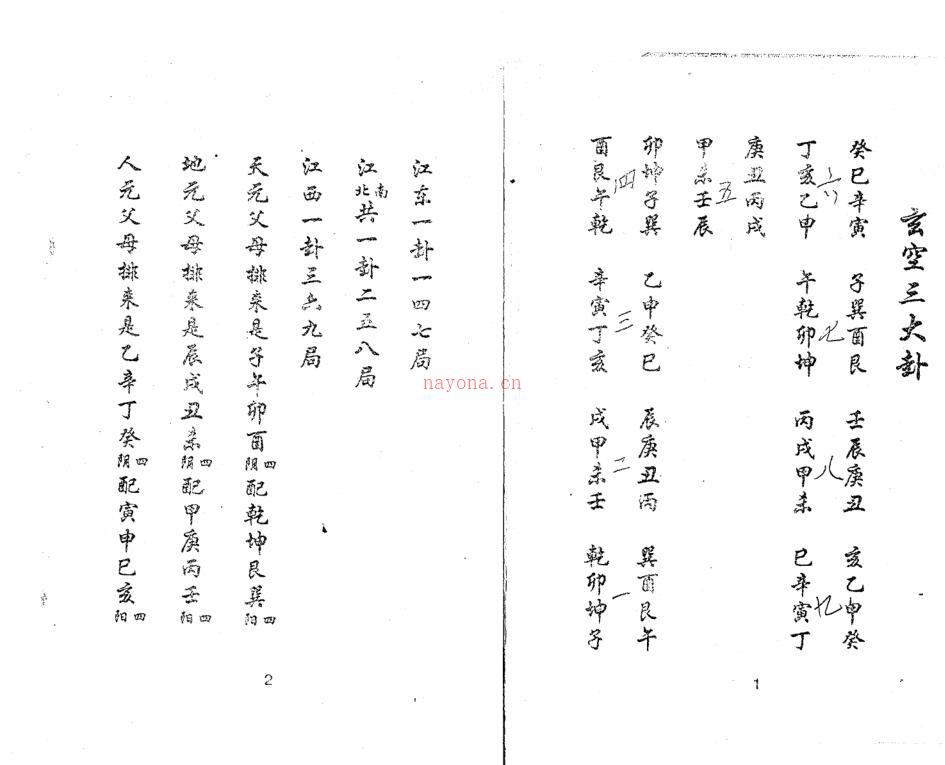 玄空三大卦
癸巳辛寅 子巽酉艮 壬辰庚丑 亥乙申癸
六 七 八 九
丁亥乙申 午乾卯坤 丙戌甲未 巳辛寅丁
庚丑丙戌
五
甲未壬辰
卯坤子巽 乙申癸巳 辰庚丑丙 巽酉艮午
四 三 二 一
酉艮午乾 辛寅丁亥 戌甲未壬 乾卯坤子
1
江东一卦一四七局
江南北共一卦二五八局
江西一卦三六九局
天元父母排来是子午卯酉四阴配乾坤艮巽四阳
地元父母排来是辰戌丑未四阴配甲庚丙壬四阳
人元父母排来是乙辛丁癸四阴配寅申巳亥四阳
2
nayona.cn